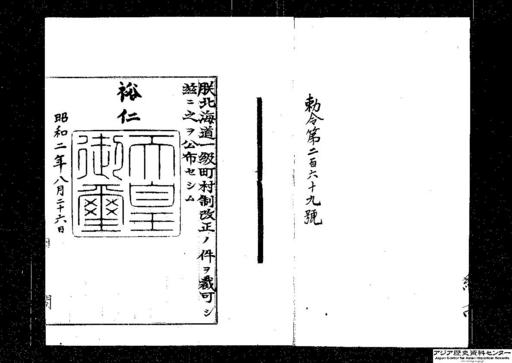 勅令第二百六十九號
朕北海道一級町村制改正ノ件ヲ裁可シ
茲ニ之ヲ公布セシム
裕仁
天皇
御璽
昭和二年八月二十六日
アジア歴史資料センター
Japan Center for Asian Historical Records